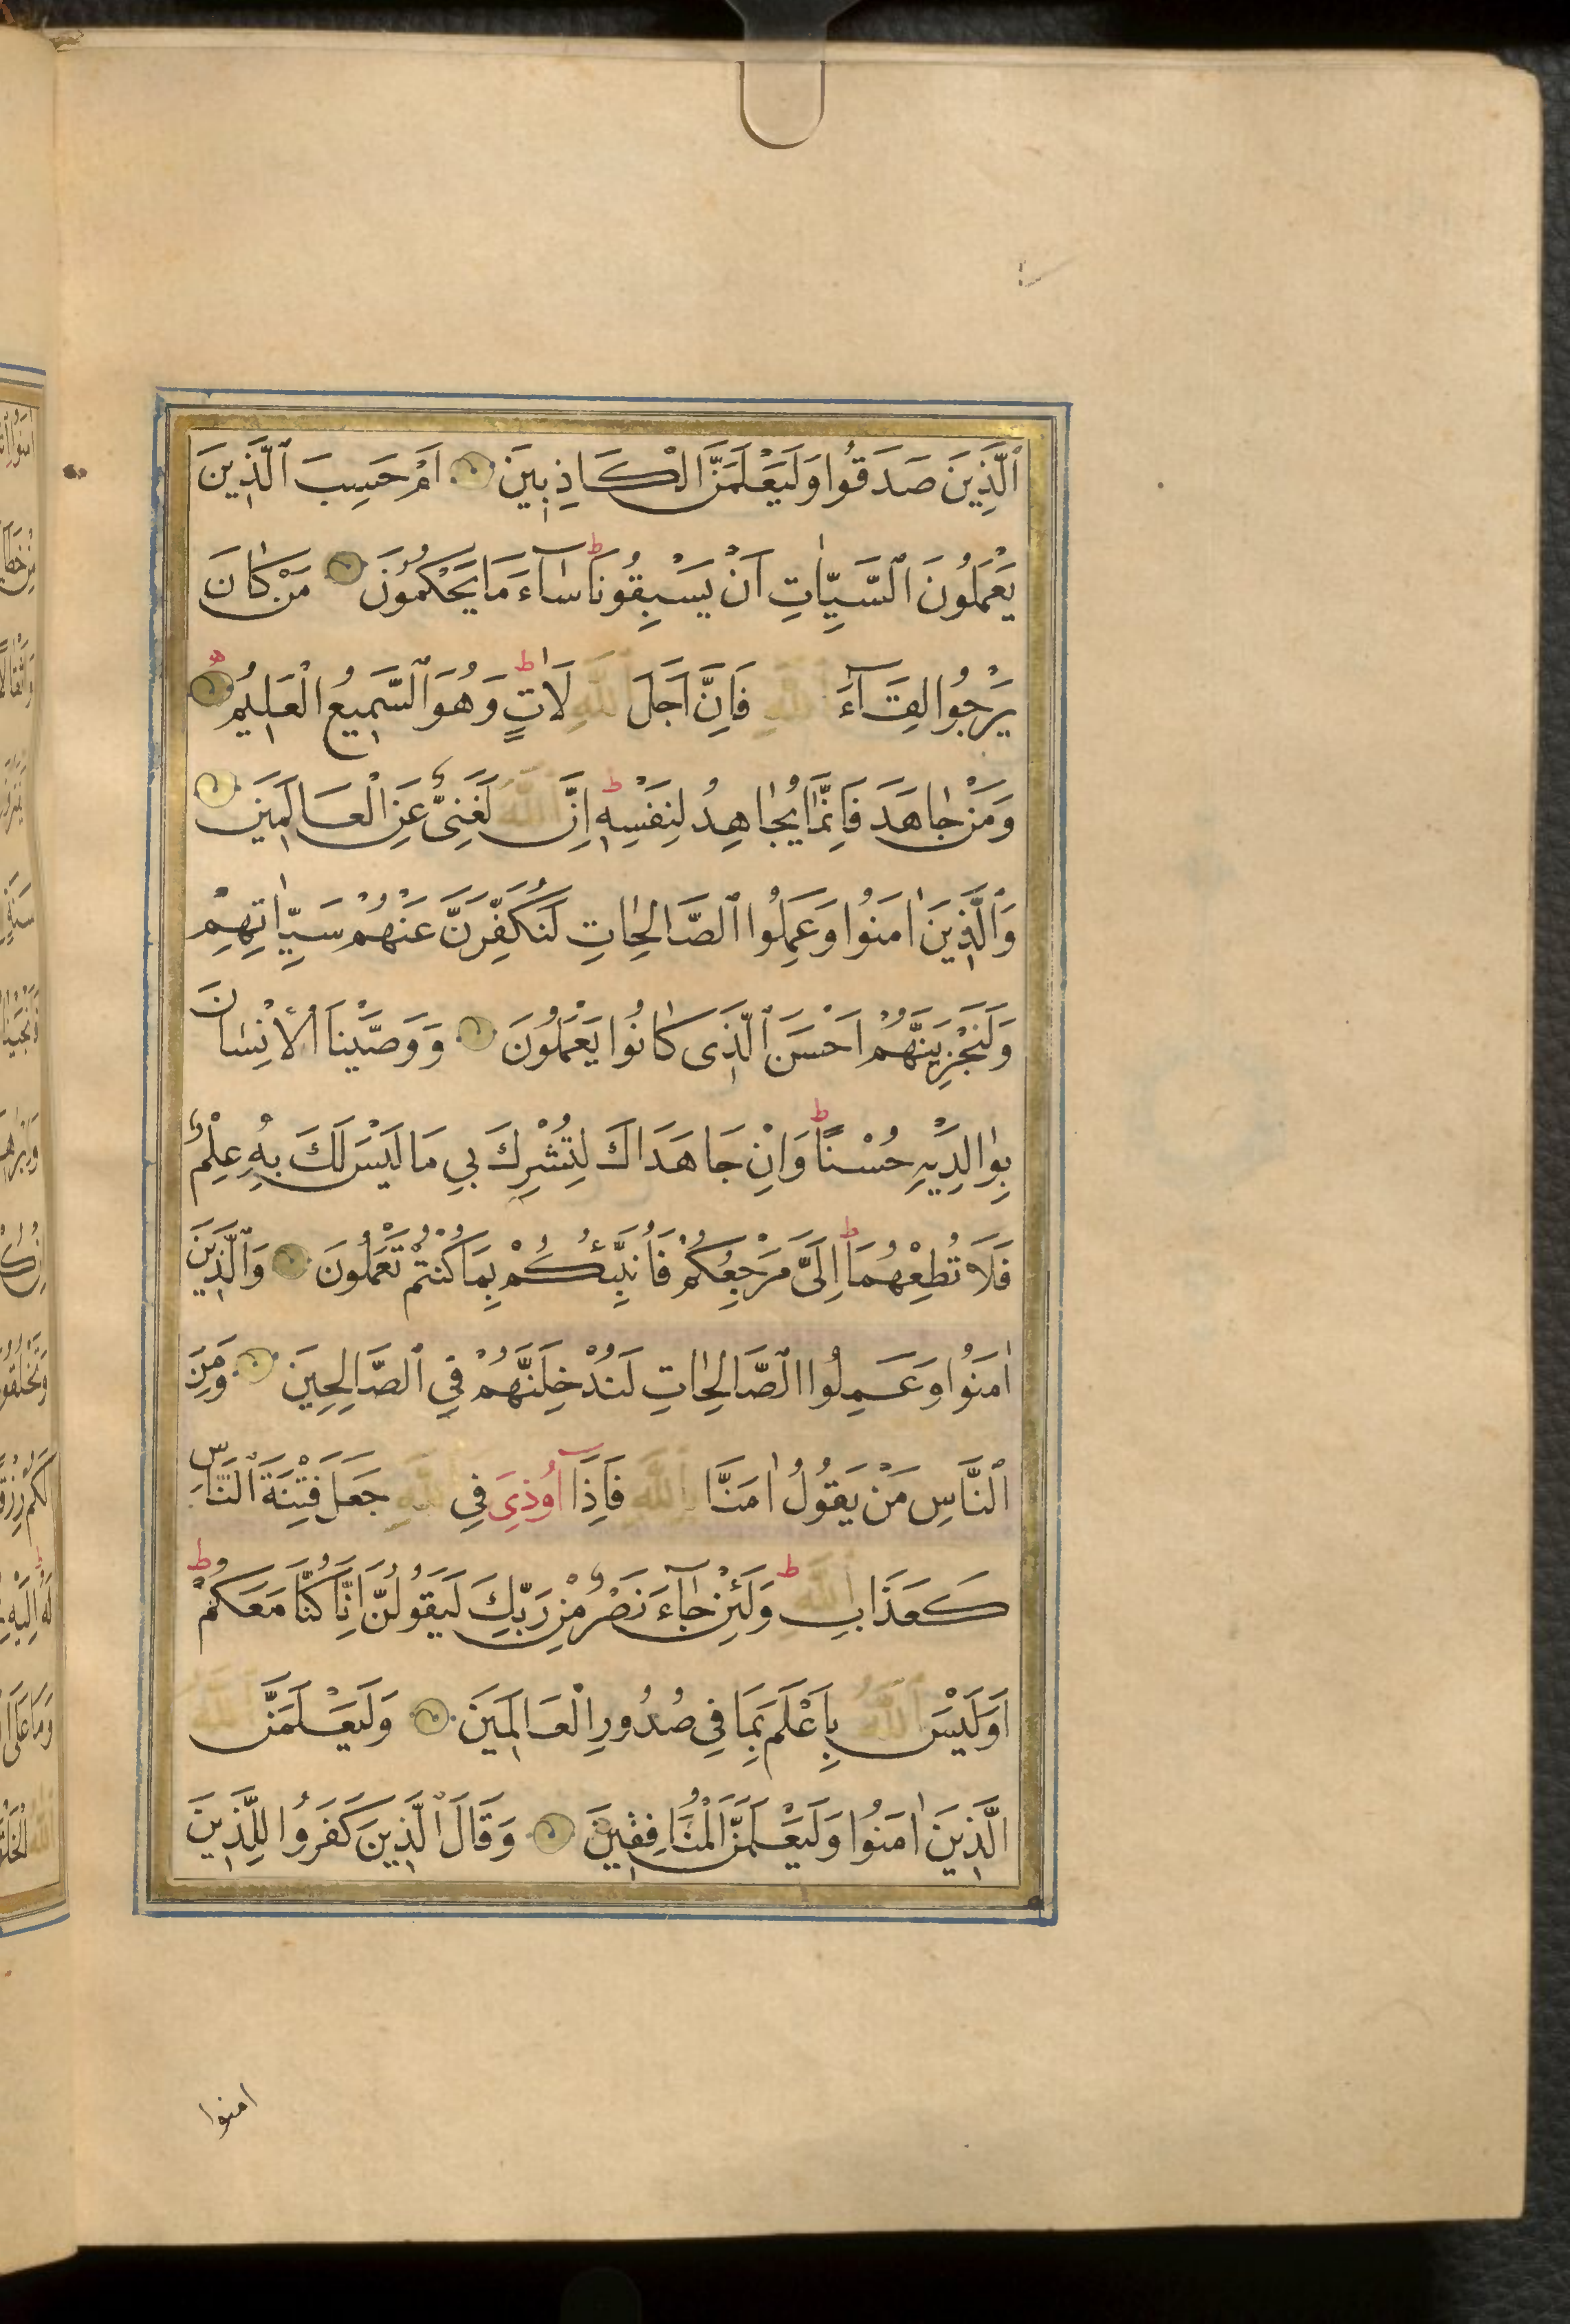 ٱلَّذِينَ صَدَقُوا وَلَيَعْلَمَنَّ الْكَاذِبِينَ اَمْ حَسِبَ ٱلَّذِينَ
يَعْمَلُونَ ٱلسَّيِّاٰتِ اَنْ يَسْبِقُونَا ط سَٓاءَ مَا يَحْكُمُونَ مَنْ كَانَ
يَرْجُوا لِقَٓاءَ ٱللّٰهِ فَاِنَّ اَجَلَ ٱللّٰهِ لَاٰتٍ ط وَهُوَ ٱلسَّمِيعُ الْعَلِيمُ
وَمَنْ جَاهَدَ فَاِنَّمَا يُجَاهِدُ لِنَفْسِهِ ط اِنَّ ٱللّٰهَ لَغَنِىٌّ عَنِ الْعَالَمِينَ
وَٱلَّذِينَ اٰمَنُوا وَعَمِلُوا ٱلصَّالِحَاتِ لَنُكَفِّرَنَّ عَنْهُمْ سَيِّاٰتِهِمْ
وَلَنَجْزِيَنَّهُمْ اَحْسَنَ ٱلَّذِى كَانُوا يَعْمَلُونَ وَوَصَّيْنَا ٱلْاِنْسَانَ
بِوَالِدَيْهِ حُسْنًا ط وَاِنْ جَاهَدَاكَ لِتُشْرِكَ بِي مَا لَيْسَ لَكَ بِهِ عِلْمٌ
فَلَا تُطِعْهُمَا ط اِلَىَّ مَرْجِعُكُمْ فَاُنَبِّئُكُمْ بِمَا كُنْتُمْ تَعْمَلُونَ وَالَّذِينَ
اٰمَنُوا وَعَمِلُوا ٱلصَّالِحَاتِ لَنُدْخِلَنَّهُمْ فِي ٱلصَّالِحِينَ وَمِنَ
ٱلنَّاسِ مَنْ يَقُولُ اٰمَنَّا بِٱللّٰهِ فَاِذَٓا اُوذِىَ فِي ٱللّٰهِ جَعَلَ فِتْنَةَ ٱلنَّاسِ
كَعَذَابِ ٱللّٰهِ ط وَلَئِنْ جَٓاءَ نَصْرٌ مِنْ رَبِّكَ لَيَقُولُنَّ اِنَّا كُنَّا مَعَكُمْ ط
اَوَلَيْسَ ٱللّٰهُ بِاَعْلَمَ بِمَا فِي صُدُورِ الْعَالَمِينَ وَلَيَعْلَمَنَّ ٱللّٰهُ
الَّذِينَ اٰمَنُوا وَلَيَعْلَمَنَّ الْمُنَافِقِينَ وَقَالَ الَّذِينَ كَفَرُوا لِلَّذِينَ
امنوا